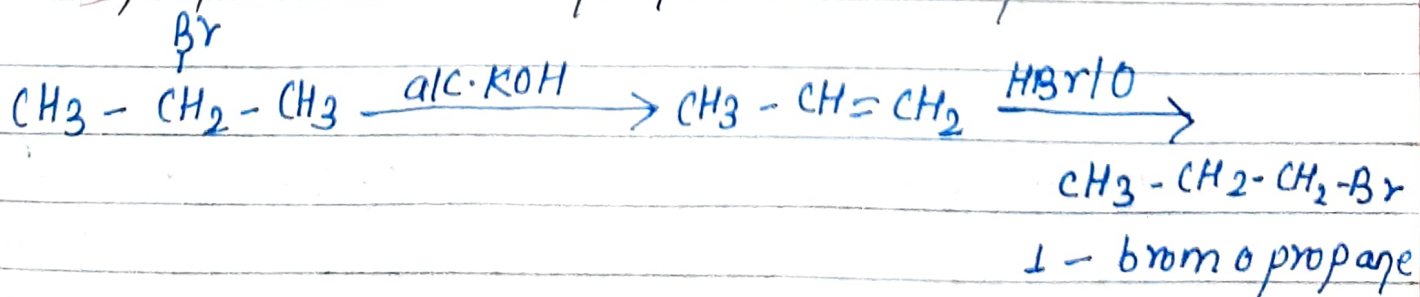 Br
CH3 - CH2 - CH3 alc. KOH → CH3 - CH = CH2 HBr/O →
CH3 - CH2 - CH2 - Br
1 - bromopropane